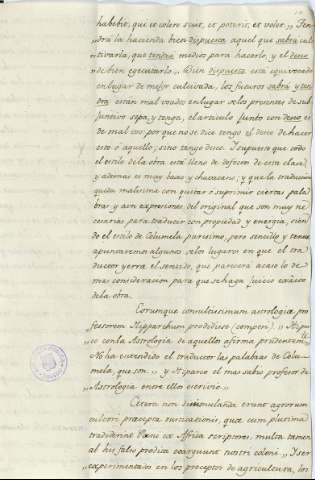 habebit, qui et colere sciet, et poterit, et volet. „ Ten-
drá la hacienda bien dispuesta aquel que sabrá cul-
tivarla, que tendrá medios para hacerlo, y el deve
„ de bien egecutarlo. „ Bien dispuesta está equivocado
en lugar de mejor cultivada, los futuros sabrá y ten-
drá estan mal usados en lugar de los presentes de sub-
juntivo sepa, y tenga, el articulo junto con deve es
de mal uso; por que no se dice tengo el deve de hacer
esto ó aquello, sino tengo deve. Supuesto que todo
el estilo de la obra está lleno de defectos de esta clase,
y ademas es muy baxo y chavacano, y que la traduccion
queda malisima con quitar o suprimir ciertas pala-
bras y aun expresiones del original que son muy ne-
cesarias para traducir con propiedad y energia, sien-
do el estilo de Columela purisimo, pero sencillo y tenue
apuntaremos algunos de los lugares en que el tra-
ductor yerra el sentido, que parecerá acaso lo de
mas consideracion para que se haga juicio exacto
de la obra.
Eorumque consultissimum astrologiae pro-
fessorem Hipparchum prodidisse (comperi). „ Hipar-
co con la Astrologia de aquellos afirma prudentem.te
No ha entendido el traductor las palabras de Colu-
mela, que son: „ y Hiparco el mas sabio profesor de
„ Astrologia entre ellos escrivio. „
Ceterum non dissimulanda erunt agrorum
cultori praecepta rusticationis, quae cum plurima
tradiderint Poeni ex Africa scriptores, multa tamen
ab his falso prodita coarguunt nostri coloni. „ Y ser
experimentado en los preceptos de agricultura, los